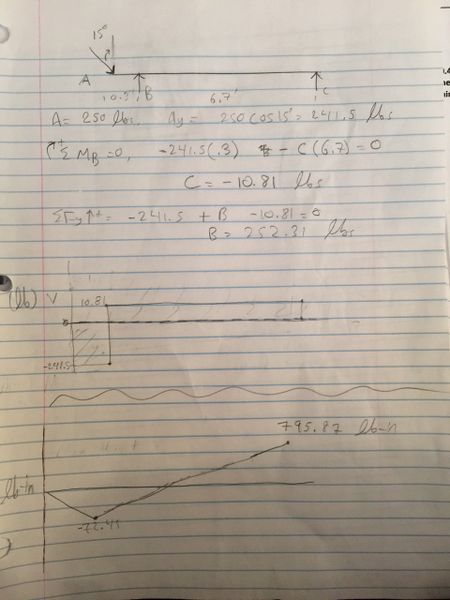 15°
A
B
C
6.7'
A = 250 lbs, Ay = 250 cos 15° = 241.5 lbs
Σ MB = 0, -241.5(.3) - C(6.7) = 0
C = -10.81 lbs
ΣFy ↑+ = -241.5 + B - 10.81 = 0
B = 252.31 lbs
(lb) V 10.81
-241.5
795.87 lb-in
lb-in
-72.45